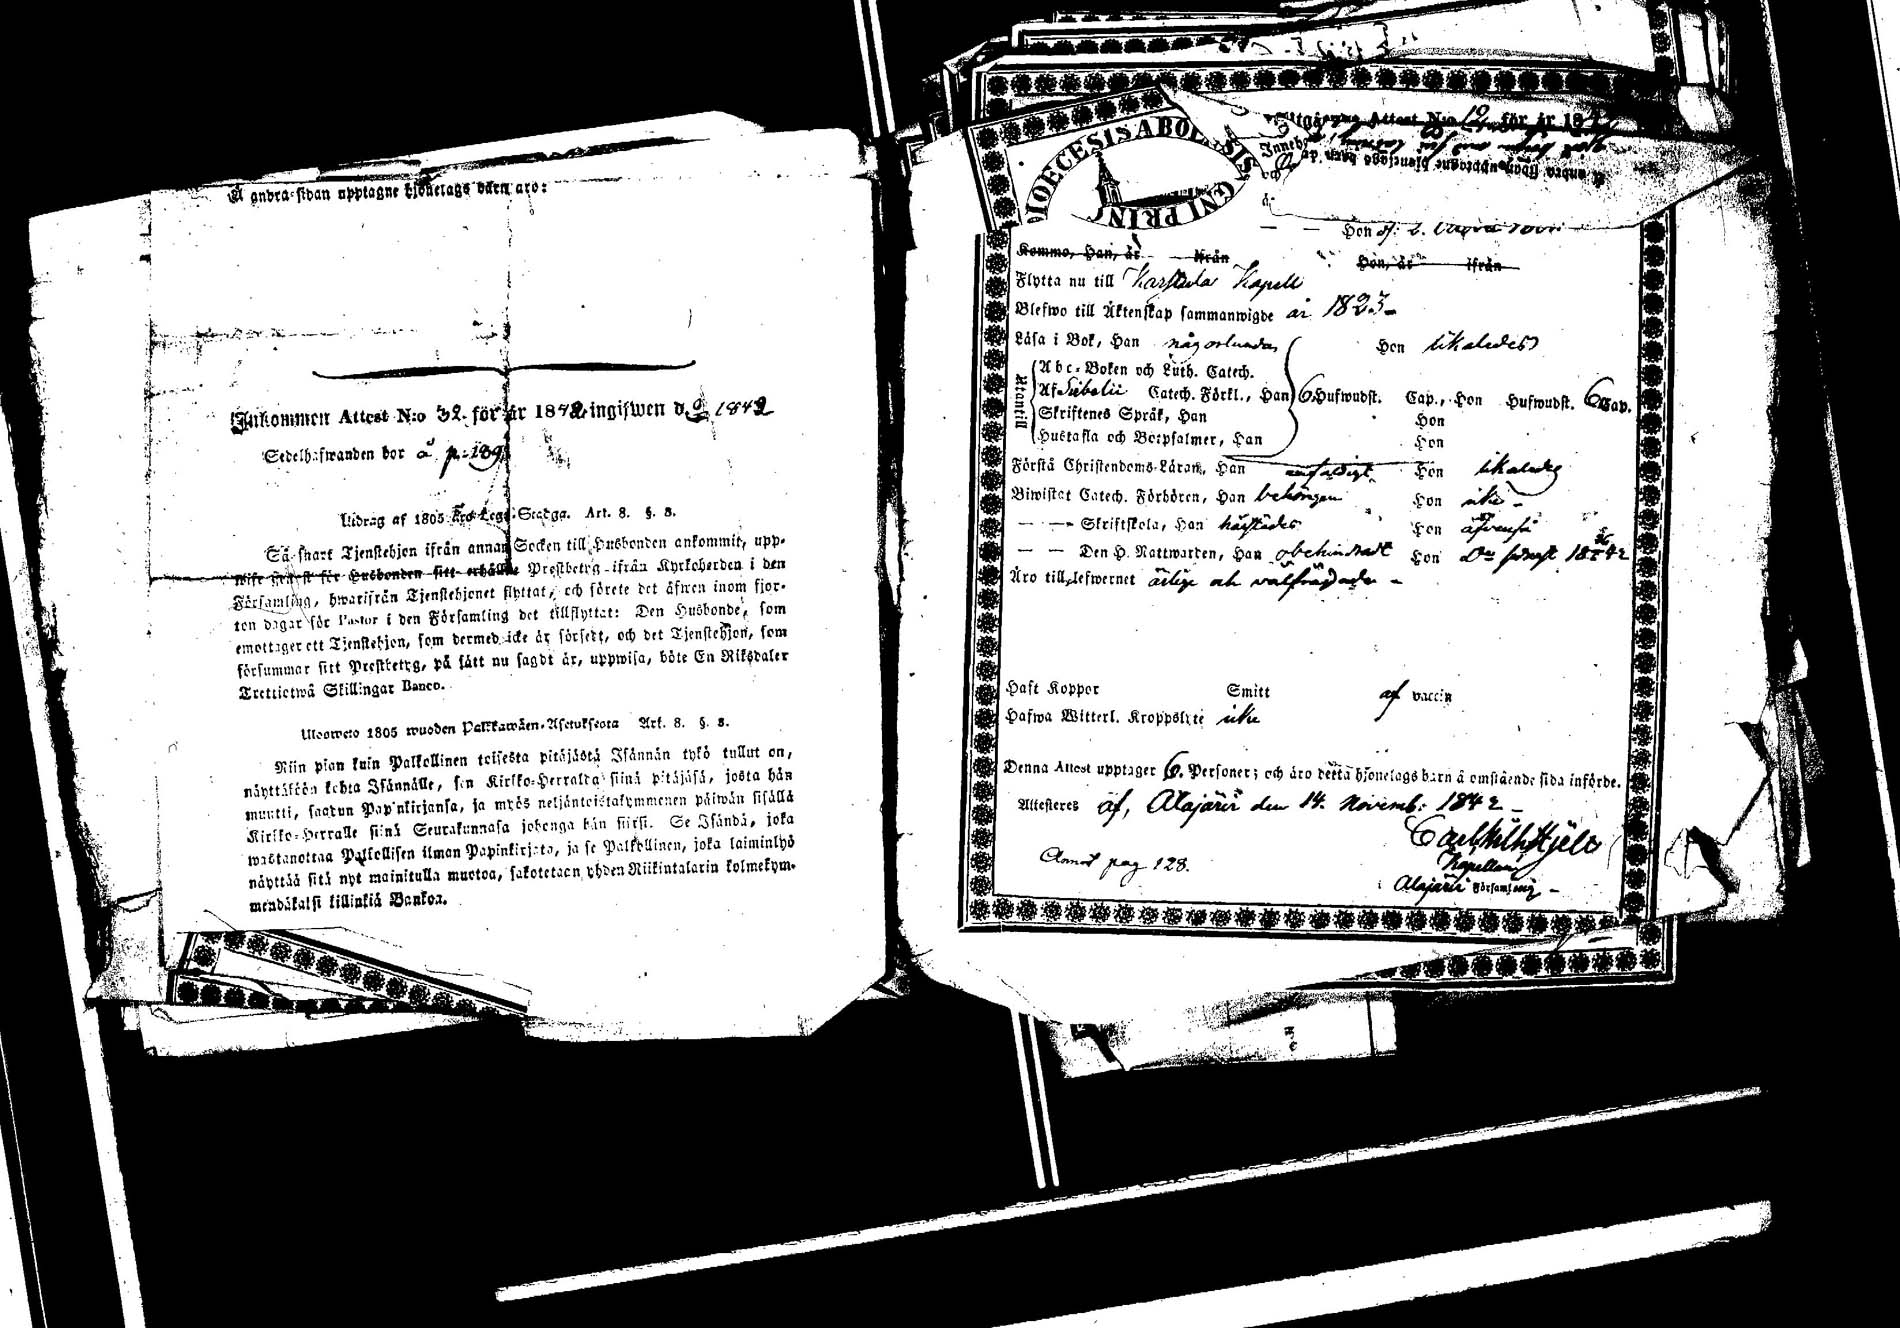 Å andra sidan upptagne hjonelags barn äro:
Inkommen Attest N:o 32 för år 1842 ingifwen d. 1842
Sedelhafwanden bor å p. 189
Utdrag af 1805 års Lego-Stadga. Art. 8. §. 8.
Så snart Tjenstehjon ifrån annan Socken till Husbonden ankommit, upp-
wise för Husbonden sitt erhållne Prestbetyg ifrån Kyrkoherden i den
Församling, hwarifrån Tjenstehjonet flyttat, och förete det äfwen inom fjor-
ton dagar för Pastor i den Församling det tillflyttat: Den Husbonde, som
emottager ett Tjenstehjon, som dermed icke är försedt, och det Tjenstehjon, som
försummar sitt Prestbetyg, på sätt nu sagdt är, uppwisa, böte En Riksdaler
Trettiotwå Skillingar Banco.
Uloswето 1805 wuoden Palkkawäen-Asetuksesta Art. 8. §. 8.
Niin pian kuin Palkollinen toisesta pitäjästä Isännän tykö tullut on,
näyttäköön kohta Isännälle, sen Kirkko-Herralta siinä pitäjäsä, josta hän
muutti, saadun Papinkirjansa, ja myös neljäntoistakymmenen päiwän sisällä
Kirkko-Herralle siinä Seurakunnasa johonga hän siirsi. Se Isändä, joka
wastanottaa Palkollisen ilman Papinkirjata, ja se Palkollinen, joka laiminlyö
näyttää sitä nyt mainitulla muotoa, sakotetaan yhden Riikintalarin kolmekym-
mendäkaksi killinkiä Bankoa.
DIOECESIS ABOENSIS
Utgångne Attest N:o 12 för år 184
Hon
Komme, Han, är ifrån Hon, är ifrån
Flytta nu till Karstula Kapell
Blefwo till Äktenskap sammanwigde år 1823
Läsa i Bok, Han någorlunda Hon likaledes
Utantill
Abc-Boken och Luth. Catech.
Af Sebelii Catech. Förkl., Han 6 Hufwudst. Cap., Hon Hufwudst. 6 Cap.
Skriftenes Språk, Han Hon
Hustafla och Botpsalmer, Han Hon
Förstå Christendoms-Läran, Han enfaldigt Hon likaledes
Biwistat Catech. Förhören, Han behörigen Hon icke
— — Skriftskola, Han härstädes Hon äfvenså
— — Den H. Nattwarden, Han obehindradt Hon
Äro till lefwernet ärlige och välfrägdade
Haft Koppor Smitt af vaccin
Hafwa Witterl. Kroppslyte icke
Denna Attest upptager 6. Personer; och äro detta hjonelags barn å omstående sida införde.
Attesteres af, Alajärvi den 14. Novemb: 1842
Carl Wilh Hjelt
Kapellan i
Alajärvi Församling
Annot pag 128.